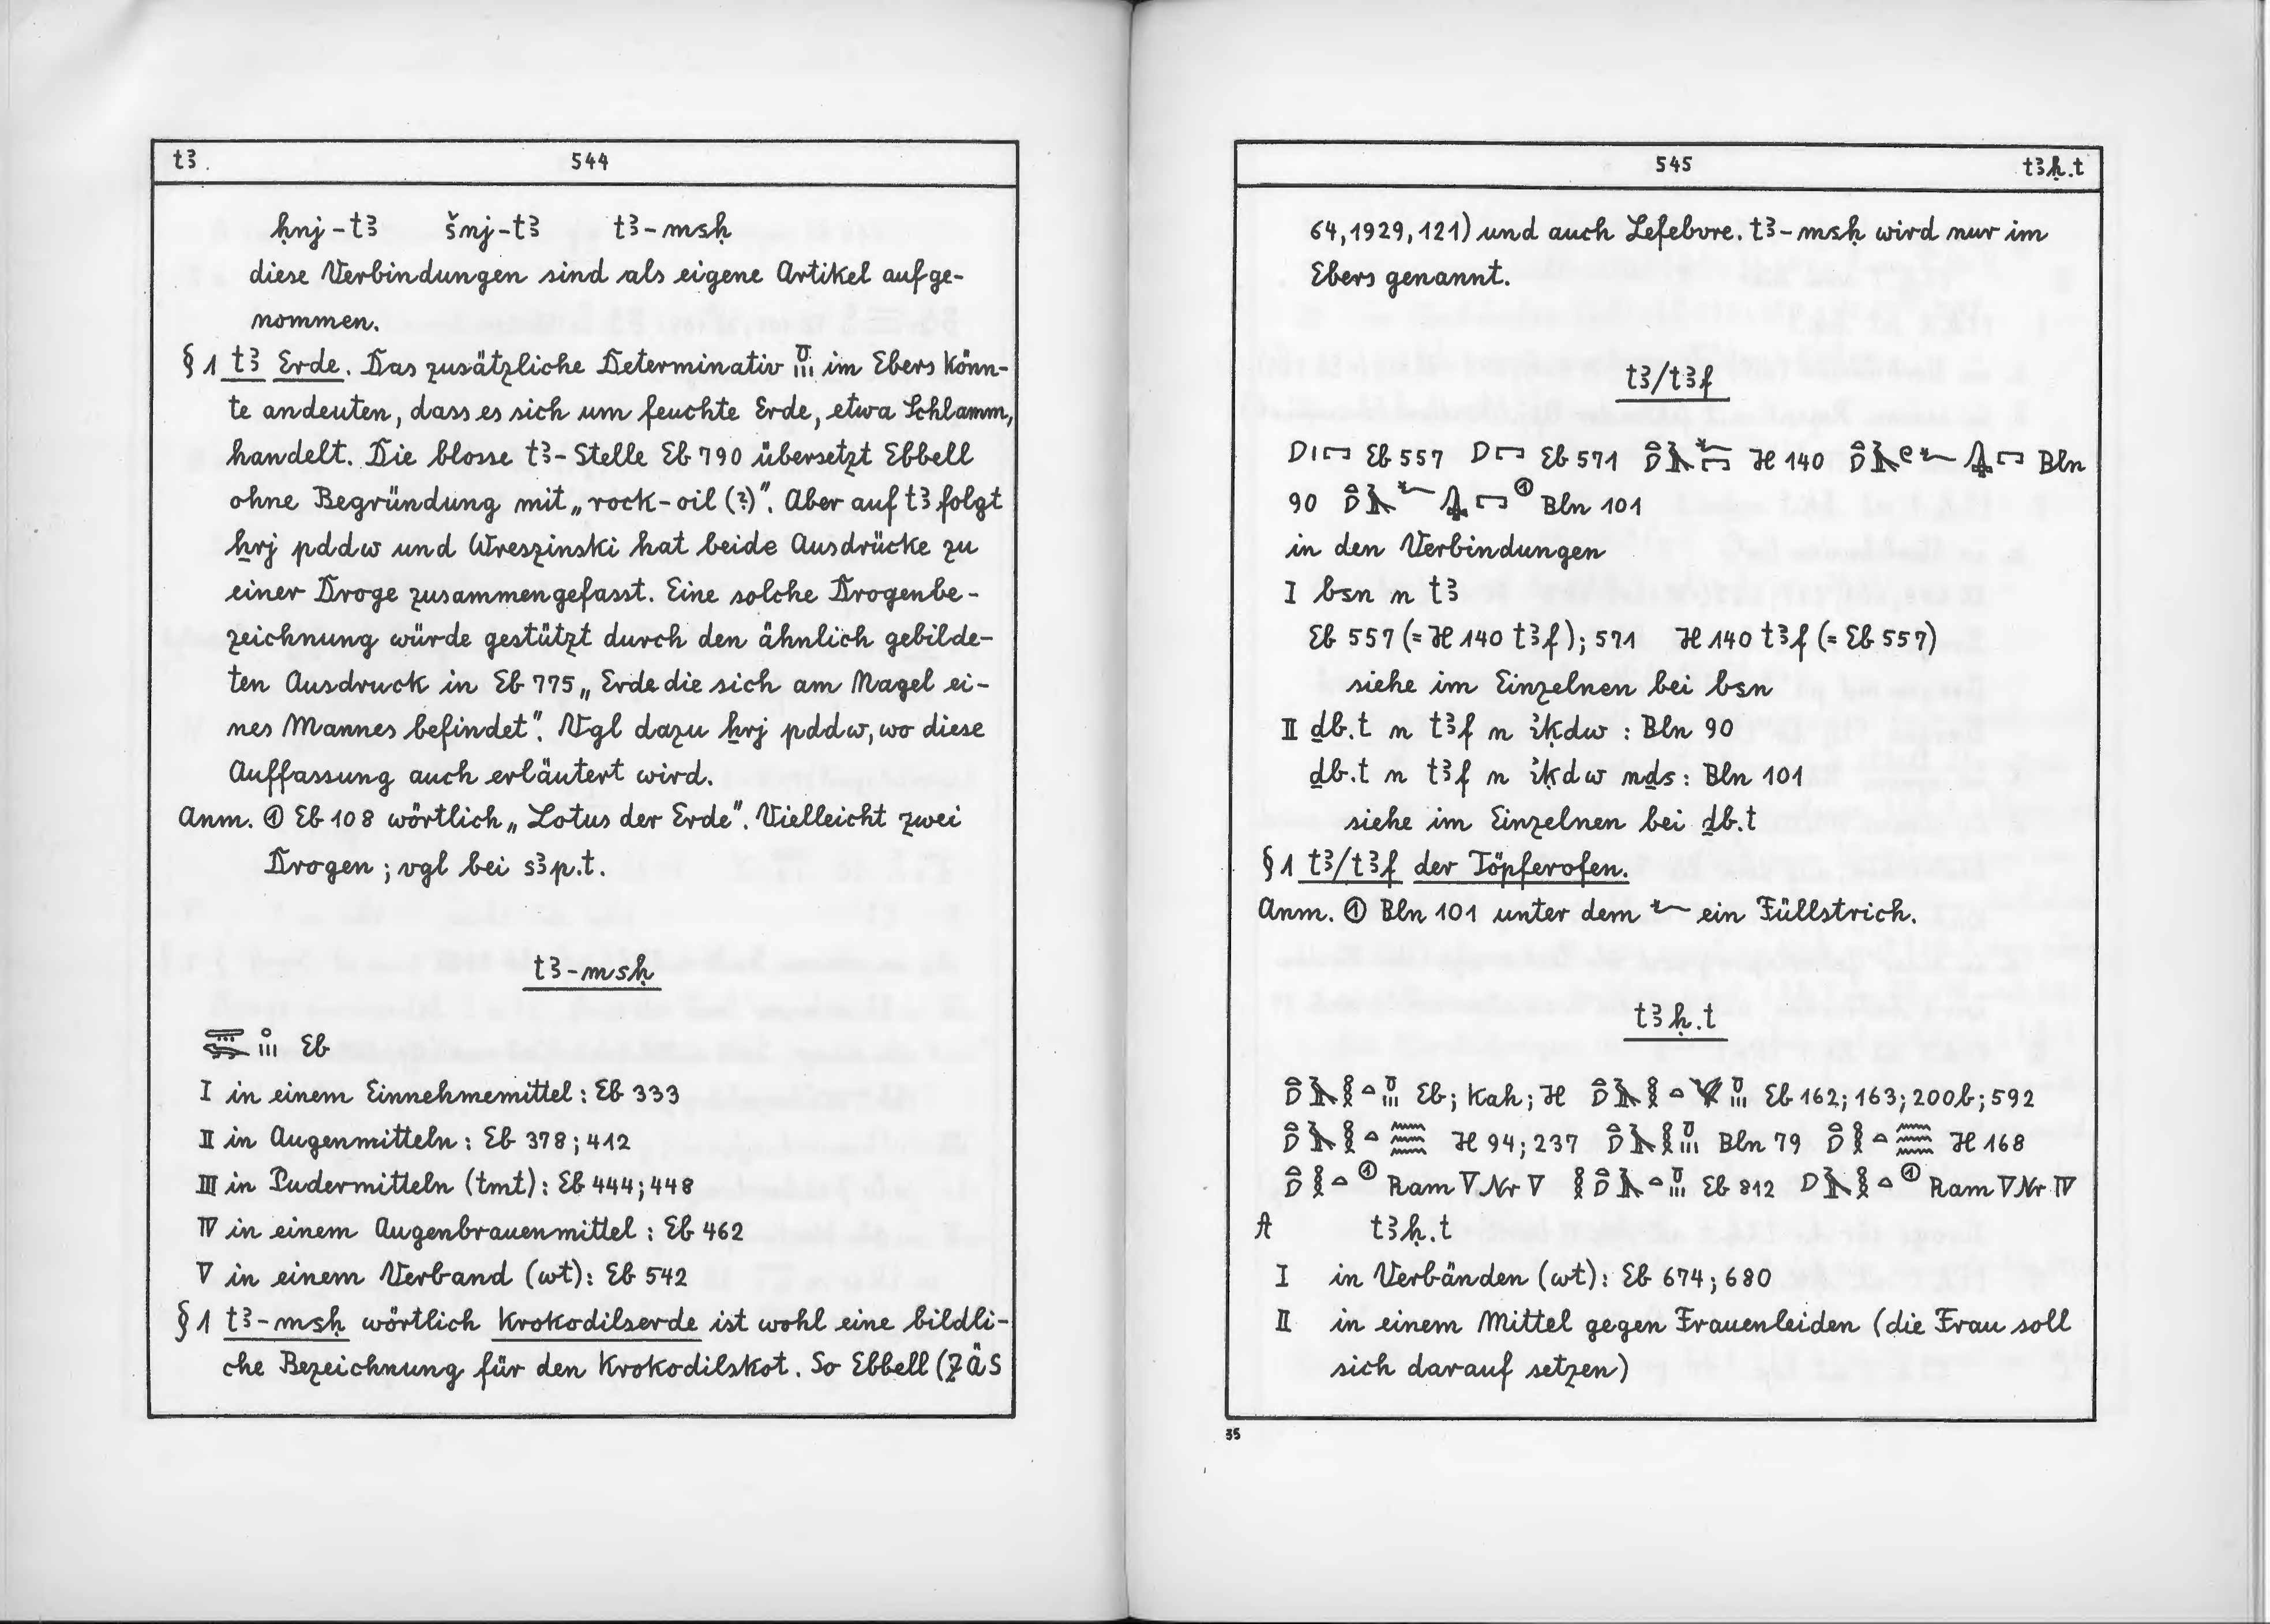 tꜣ. 544
ḥnj-tꜣ šnj-tꜣ tꜣ-msḥ
diese Verbindungen sind als eigene Artikel aufge-
nommen.
§ 1 tꜣ Erde. Das zusätzliche Determinativ im Ebers könn-
te andeuten, dass es sich um feuchte Erde, etwa Schlamm,
handelt. Die blosse tꜣ-Stelle Eb 790 übersetzt Ebbell
ohne Begründung mit „rock-oil (?)". Aber auf tꜣ folgt
ẖrj pddw und Wreszinski hat beide Ausdrücke zu
einer Droge zusammengefasst. Eine solche Drogenbe-
zeichnung würde gestützt durch den ähnlich gebilde-
ten Ausdruck in Eb 775 „Erde die sich am Nagel ei-
nes Mannes befindet". Vgl dazu ẖrj pddw, wo diese
Auffassung auch erläutert wird.
Anm. ① Eb 108 wörtlich „Lotus der Erde". Vielleicht zwei
Drogen; vgl bei sꜣp.t.
tꜣ-msḥ
Eb
I in einem Einnehmemittel: Eb 333
II in Augenmitteln: Eb 378; 412
III in Pudermitteln (tmt): Eb 444; 448
IV in einem Augenbrauenmittel: Eb 462
V in einem Verband (wt): Eb 542
§ 1 tꜣ-msḥ wörtlich Krokodilserde ist wohl eine bildli-
che Bezeichnung für den Krokodilskot. So Ebbell (ZÄS
545 tꜣḥ.t
64, 1929, 121) und auch Lefebvre. tꜣ-msḥ wird nur im
Ebers genannt.
tꜣ/tꜣf
Eb 557 Eb 571 H 140 Bln
90 ① Bln 101
in den Verbindungen
I bsn n tꜣ
Eb 557 (= H 140 tꜣf); 571 H 140 tꜣf (= Eb 557)
siehe im Einzelnen bei bsn
II ḏb.t n tꜣf n ỉḳdw : Bln 90
ḏb.t n tꜣf n ỉḳdw nḏs: Bln 101
siehe im Einzelnen bei ḏb.t
§ 1 tꜣ/tꜣf der Töpferofen.
Anm. ① Bln 101 unter dem ein Füllstrich.
tꜣḥ.t
Eb; Kah; H Eb 162; 163; 200b; 592
H 94; 237 Bln 79 H 168
① Ram V Nr V Eb 812 ① Ram V Nr IV
A tꜣḥ.t
I in Verbänden (wt): Eb 674; 680
II in einem Mittel gegen Frauenleiden (die Frau soll
sich darauf setzen)
35